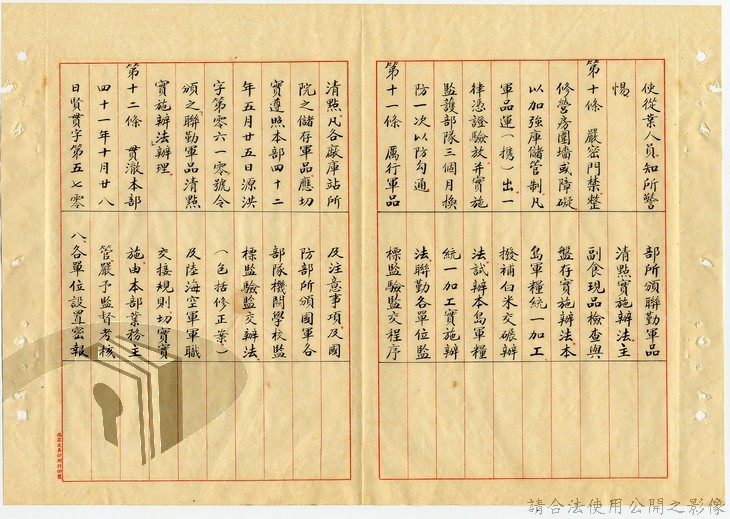 使從業人員知所警
惕
第十條　嚴密門禁整
修營房圍墻或障礙
以加強庫儲管制凡
軍品運（携）出一
律憑證驗放并實施
監護部隊三個月換
防一次以防勾通
第十一條　厲行軍品
清點凡各廠庫站所
院之儲存軍品應切
實遵照本部四十二
年五月廿五日源洪
字第零六一零號令
頒之聯勤軍品清點
實施辦法辦理
第十二條　貫澈本部
四十一年十月廿八
日賢貫字第五七零
部所頒聯勤軍品
清點實施辦法主
副食現品檢查與
盤存實施辦法本
島軍糧統一加工
撥補白米交碾辦
法試辦本島軍糧
統一加工實施辦
法聯勤各單位監
標監驗監交程序
及注意事項及國
防部所頒國軍各
部隊機關學校監
標監驗監交辦法
（包括修正案）
及陸海空軍軍職
交接規則切實實
施由本部業務主
管嚴予監督考核
八、各單位設置密報
請合法使用公開之影像